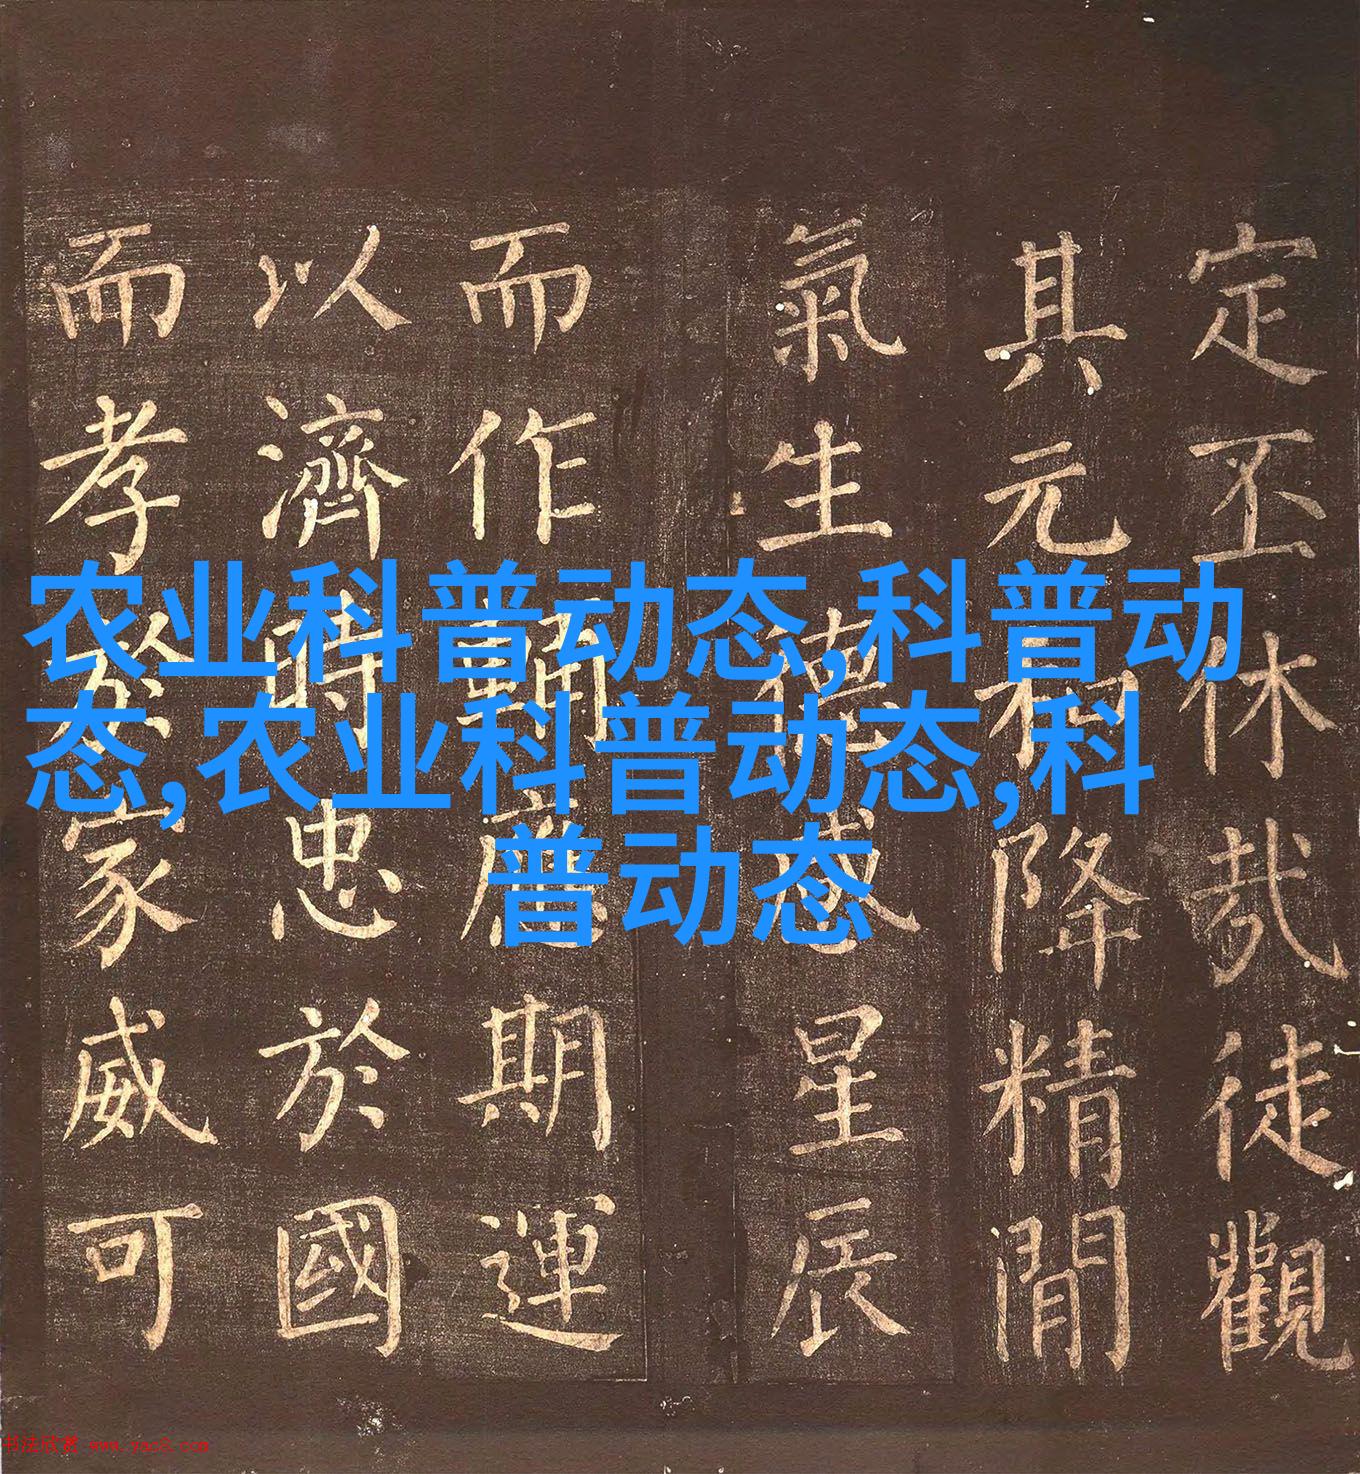 农业科普动态,科普动
态,农业科普动态,科
普动态
定丕休哉徒觀
其元和降精閒
氣生德感星辰
而作輔應期運
以濟時忠於國
而孝於家威可
书法欣赏 www.yac8.com